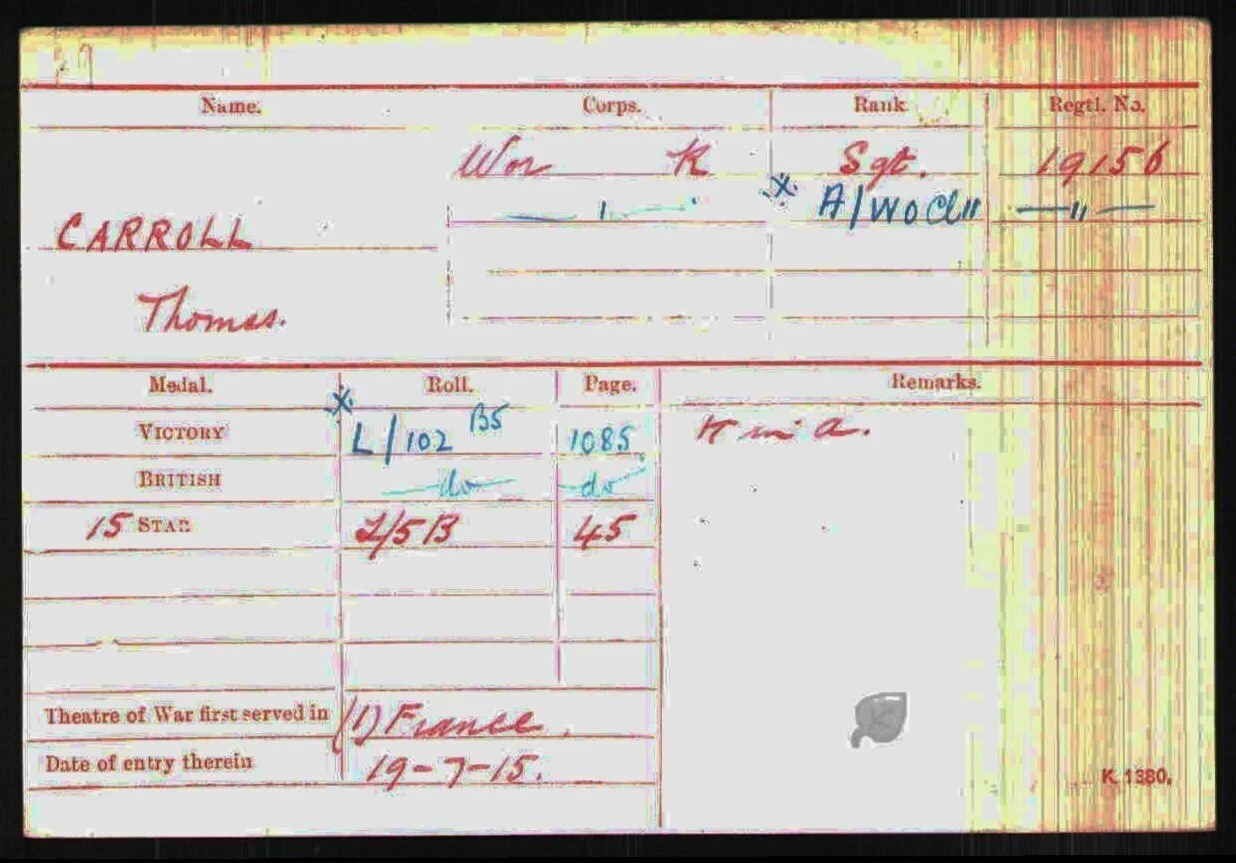 Name. Corps. Rank Regtl. No.
Wor R Sgt. 19156
CARROLL x — " — A/WO Cl II — " —
Thomas.
Medal. Roll. Page. Remarks.
VICTORY x L/102 B5 1085 K in a.
BRITISH — do — — do —
15 STAR 2/5 B 45
Theatre of War first served in (1) France.
Date of entry therein 19-7-15.
K 1380.